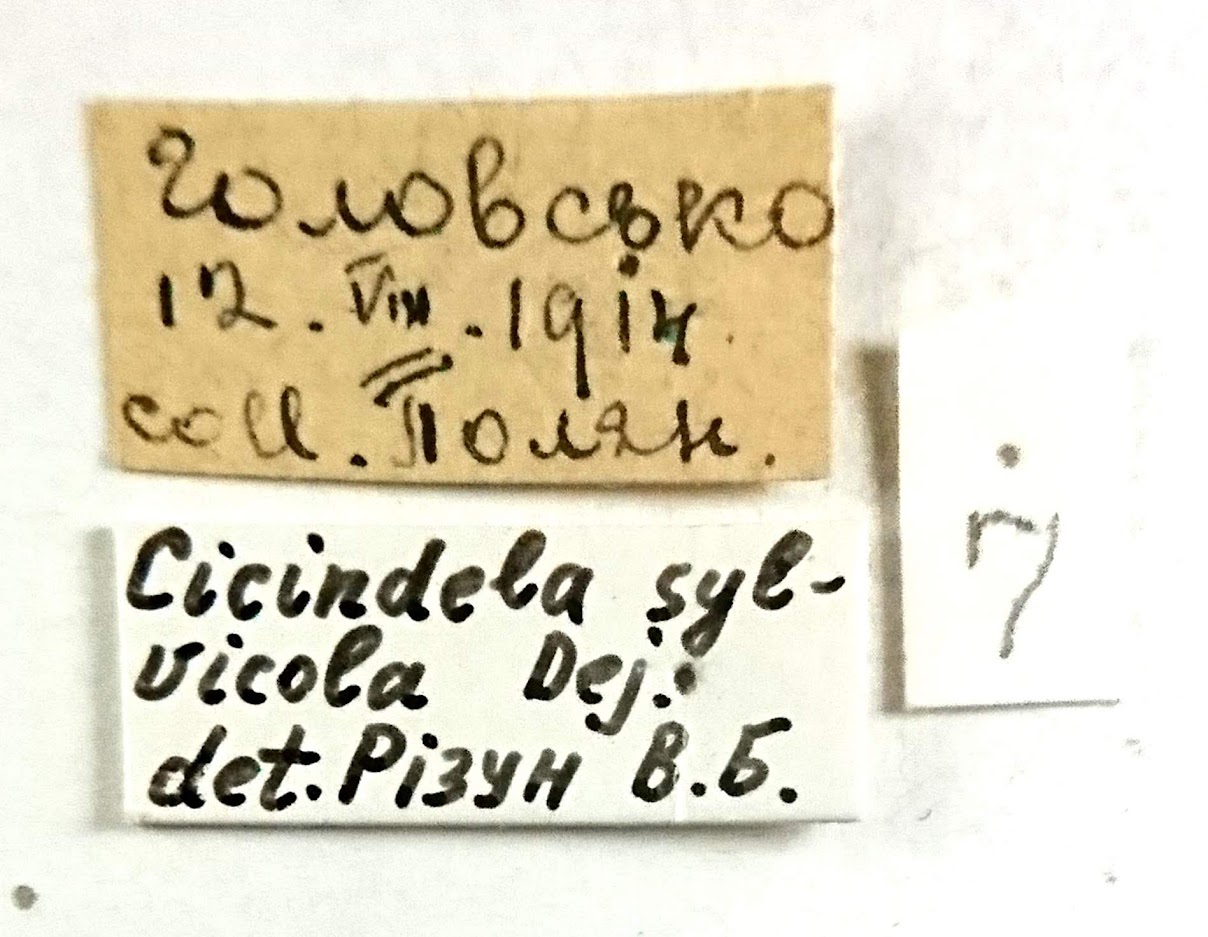 Головсько
12. VIII. 1914
coll. Полян.
Cicindela syl-
vicola Dej.
det. Різун В.Б.
7